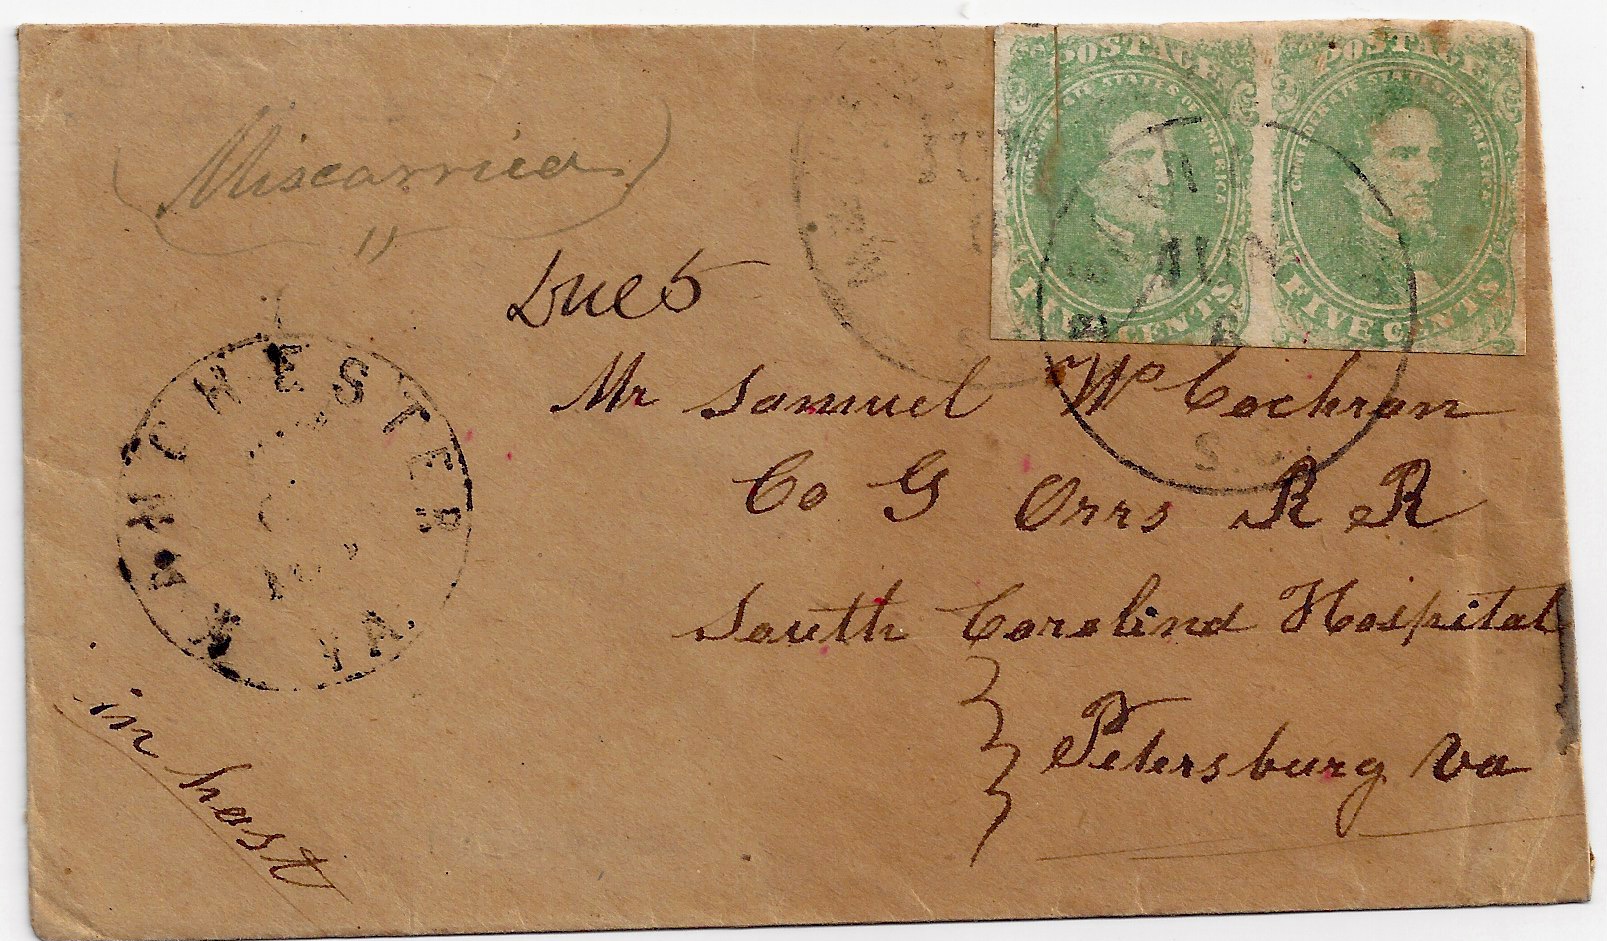 POSTAGE POSTAGE
CONFEDERATE STATES OF AMERICA CONFEDERATE STATES OF AMERICA
FIVE CENTS FIVE CENTS
JUN
S.C.
Miscarried
Due 5
Mr Samuel W Cochran
Co G Orrs R R
South Carolina Hospital
Petersburg Va
WINCHESTER VA
in hast